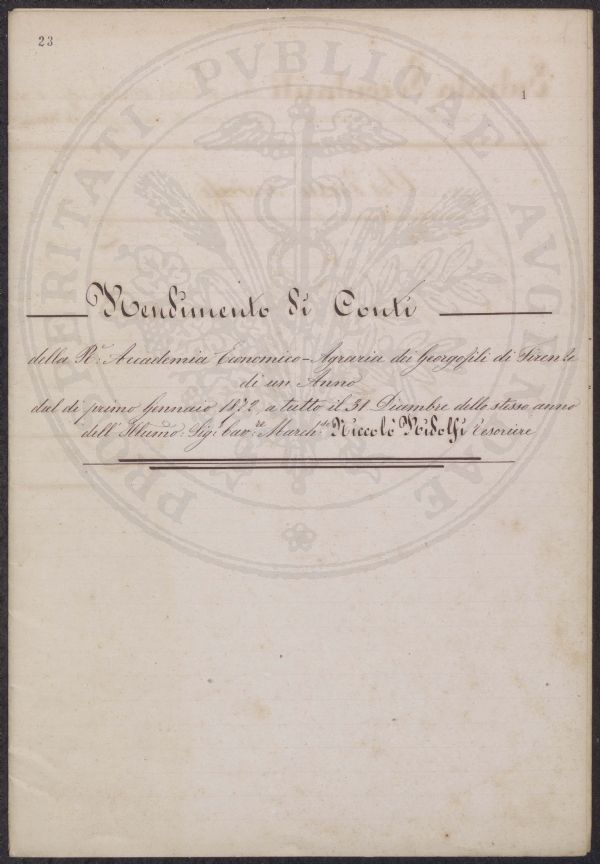 23
1
PROSPERITATI PVBLICAE AVGENDAE
Rendimento di Conti
della R. Accademia Economico-Agraria dei Georgofili di Firenze
di un Anno
dal di primo Gennaio 1872, a tutto il 31 Dicembre dello stesso anno
dell' Illumo. Sig. Cavre. March. Niccolò Ridolfi Tesoriere